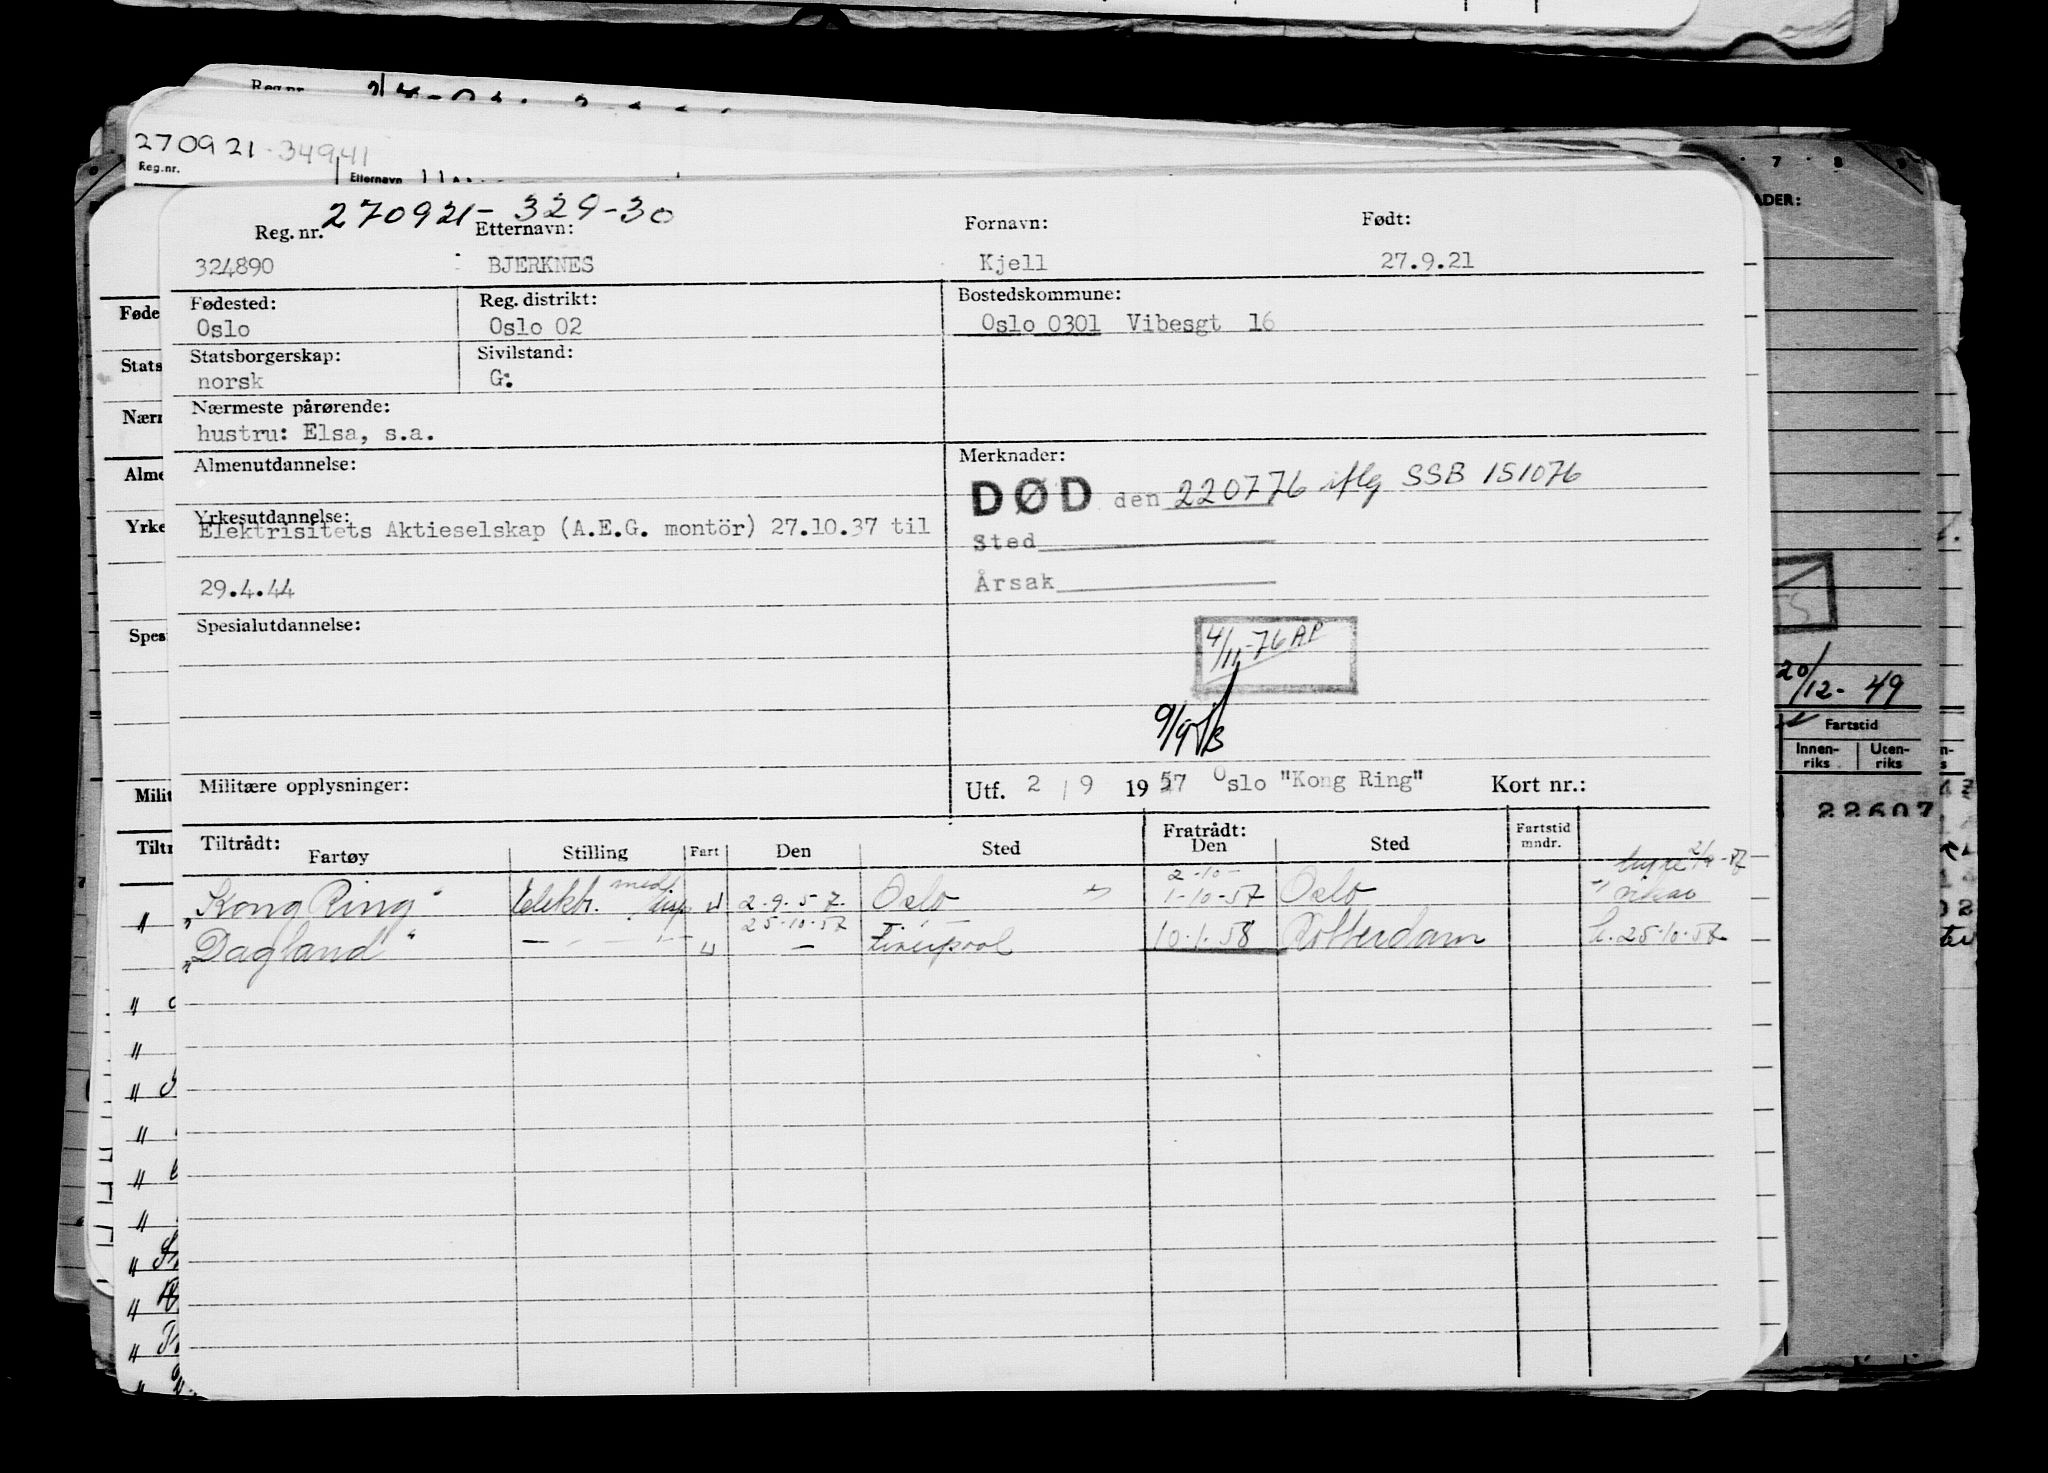 270921-34941
Reg.nr.
Etternavn
270921-329-30
Reg. nr. Etternavn: Fornavn: Født:
324890 BJERKNES Kjell 27.9.21
Fødested: Reg. distrikt: Bostedskommune:
Oslo Oslo 02 Oslo 0301 Vibesgt 16
Statsborgerskap: Sivilstand:
norsk G:
Nærmeste pårørende:
hustru: Elsa, s.a.
Almenutdannelse: Merknader:
DØD den 220776 iflg SSB 151076
Yrkesutdannelse:
Elektrisitets Aktieselskap (A.E.G. montör) 27.10.37 til
Sted
29.4.44
Årsak
Spesialutdannelse:
4/11-76 AP
Militære opplysninger: Utf. 2 / 9 1957 Oslo "Kong Ring" Kort nr.:
Tiltrådt: Fratrådt:
Fartøy Stilling Fart Den Sted Den Sted Fartstid mndr.
2-10-
"Kong Ring" Elektr. med disp U 2.9.57. Oslo 1-10-57 Oslo
25.10.57
"Dagland" — U — Liverpool 10.1.58 Rotterdam L. 25.10.57
20/12-49
Fartstid
Innen-riks Uten-riks
22607